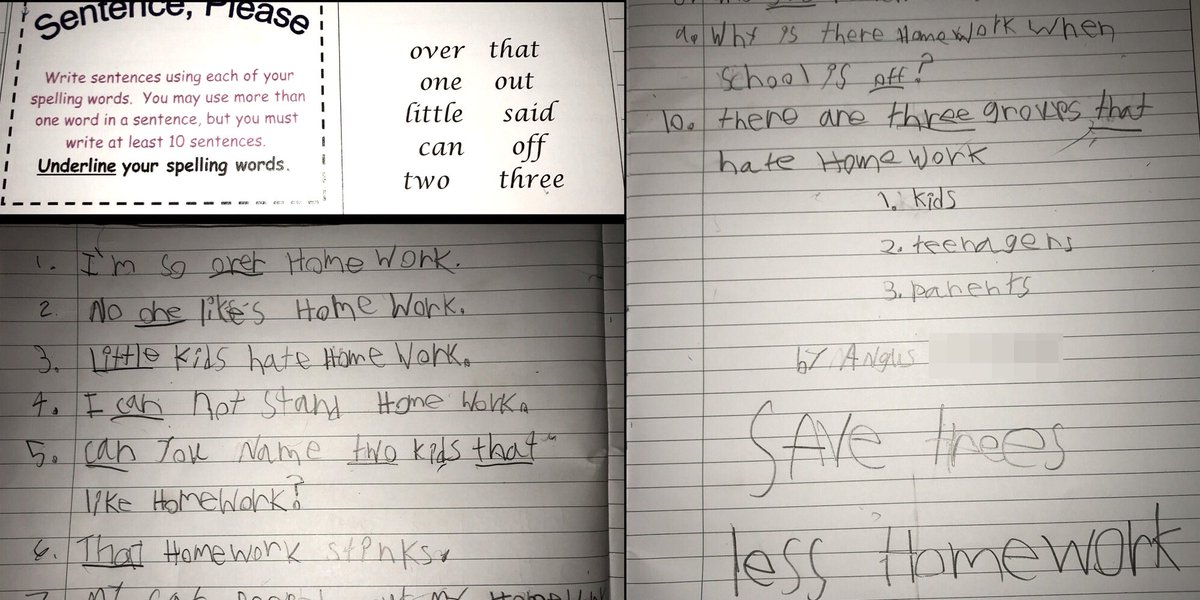 Sentence, Please
Write sentences using each of your
spelling words. You may use more than
one word in a sentence, but you must
write at least 10 sentences.
Underline your spelling words.
over that
one out
little said
can off
two three
1. I'm so over Home Work.
2. No one like's Home Work.
3. Little kids hate Home Work.
4. I can not stand Home Work.
5. can you Name two kids that
like HomeWork?
6. That Homework stinks.
9. Why is there Home Work when
school is off?
10. there are three groups that
hate Home Work
1. kids
2. teenagers
3. parents
by Angus
SAVE trees
less Homework